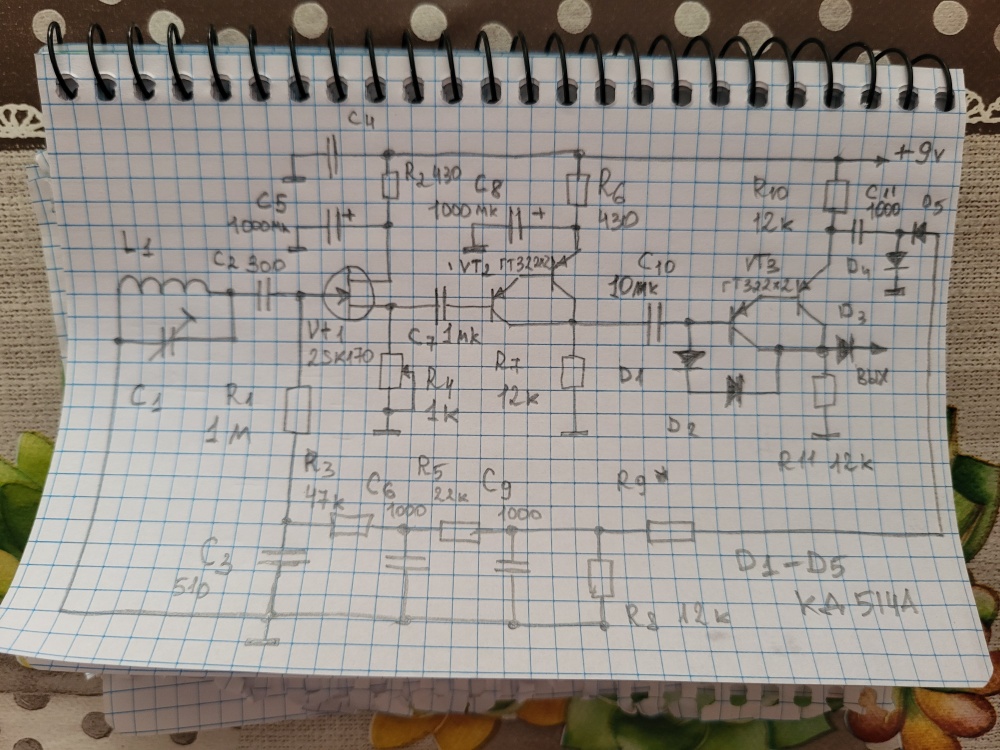 C4
+9v
R2 430
C8
1000мк
R6
430
R10
12к
C11
1000
D5
C5
1000мк
+
+
L1
C2 300
VT2 ГТ322х2
C10
10мк
VT3
ГТ322х2
D4
D3
Vт1
2SK170
C7 1мк
R7
12к
D1
вых
C1
R1
1м
R4
1к
D2
R11 12к
R3
47к
C6
1000
R5
22к
C9
1000
R9*
C3
510
R8 12к
D1-D5
КД 514А